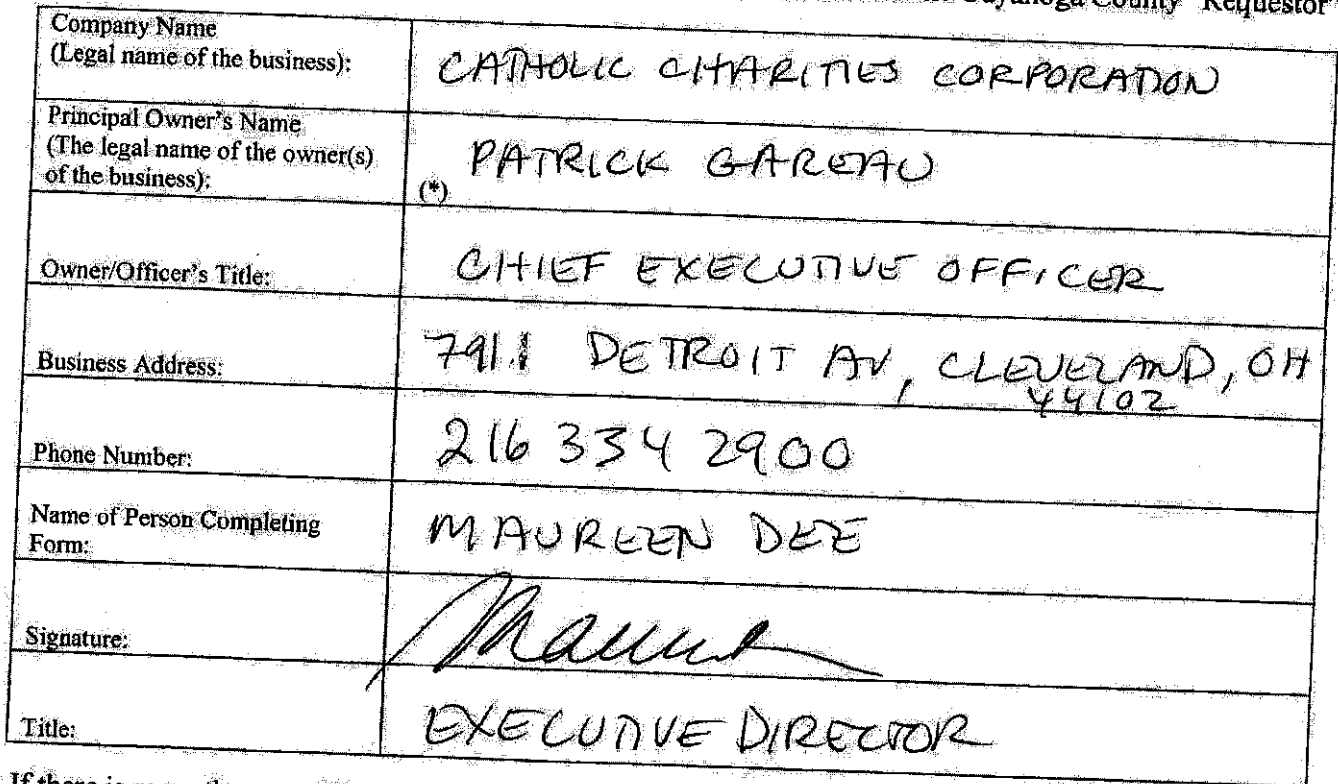 Cuyahoga County Requestor
Company Name
(Legal name of the business):
CATHOLIC CHARITIES CORPORATION
Principal Owner's Name
(The legal name of the owner(s)
of the business):
(*) PATRICK GAREAU
Owner/Officer's Title:
CHIEF EXECUTIVE OFFICER
Business Address:
7911 DETROIT AV, CLEVELAND, OH
44102
Phone Number:
216 334 2900
Name of Person Completing
Form:
MAUREEN DEE
Signature:
Title:
EXECUTIVE DIRECTOR
If there is